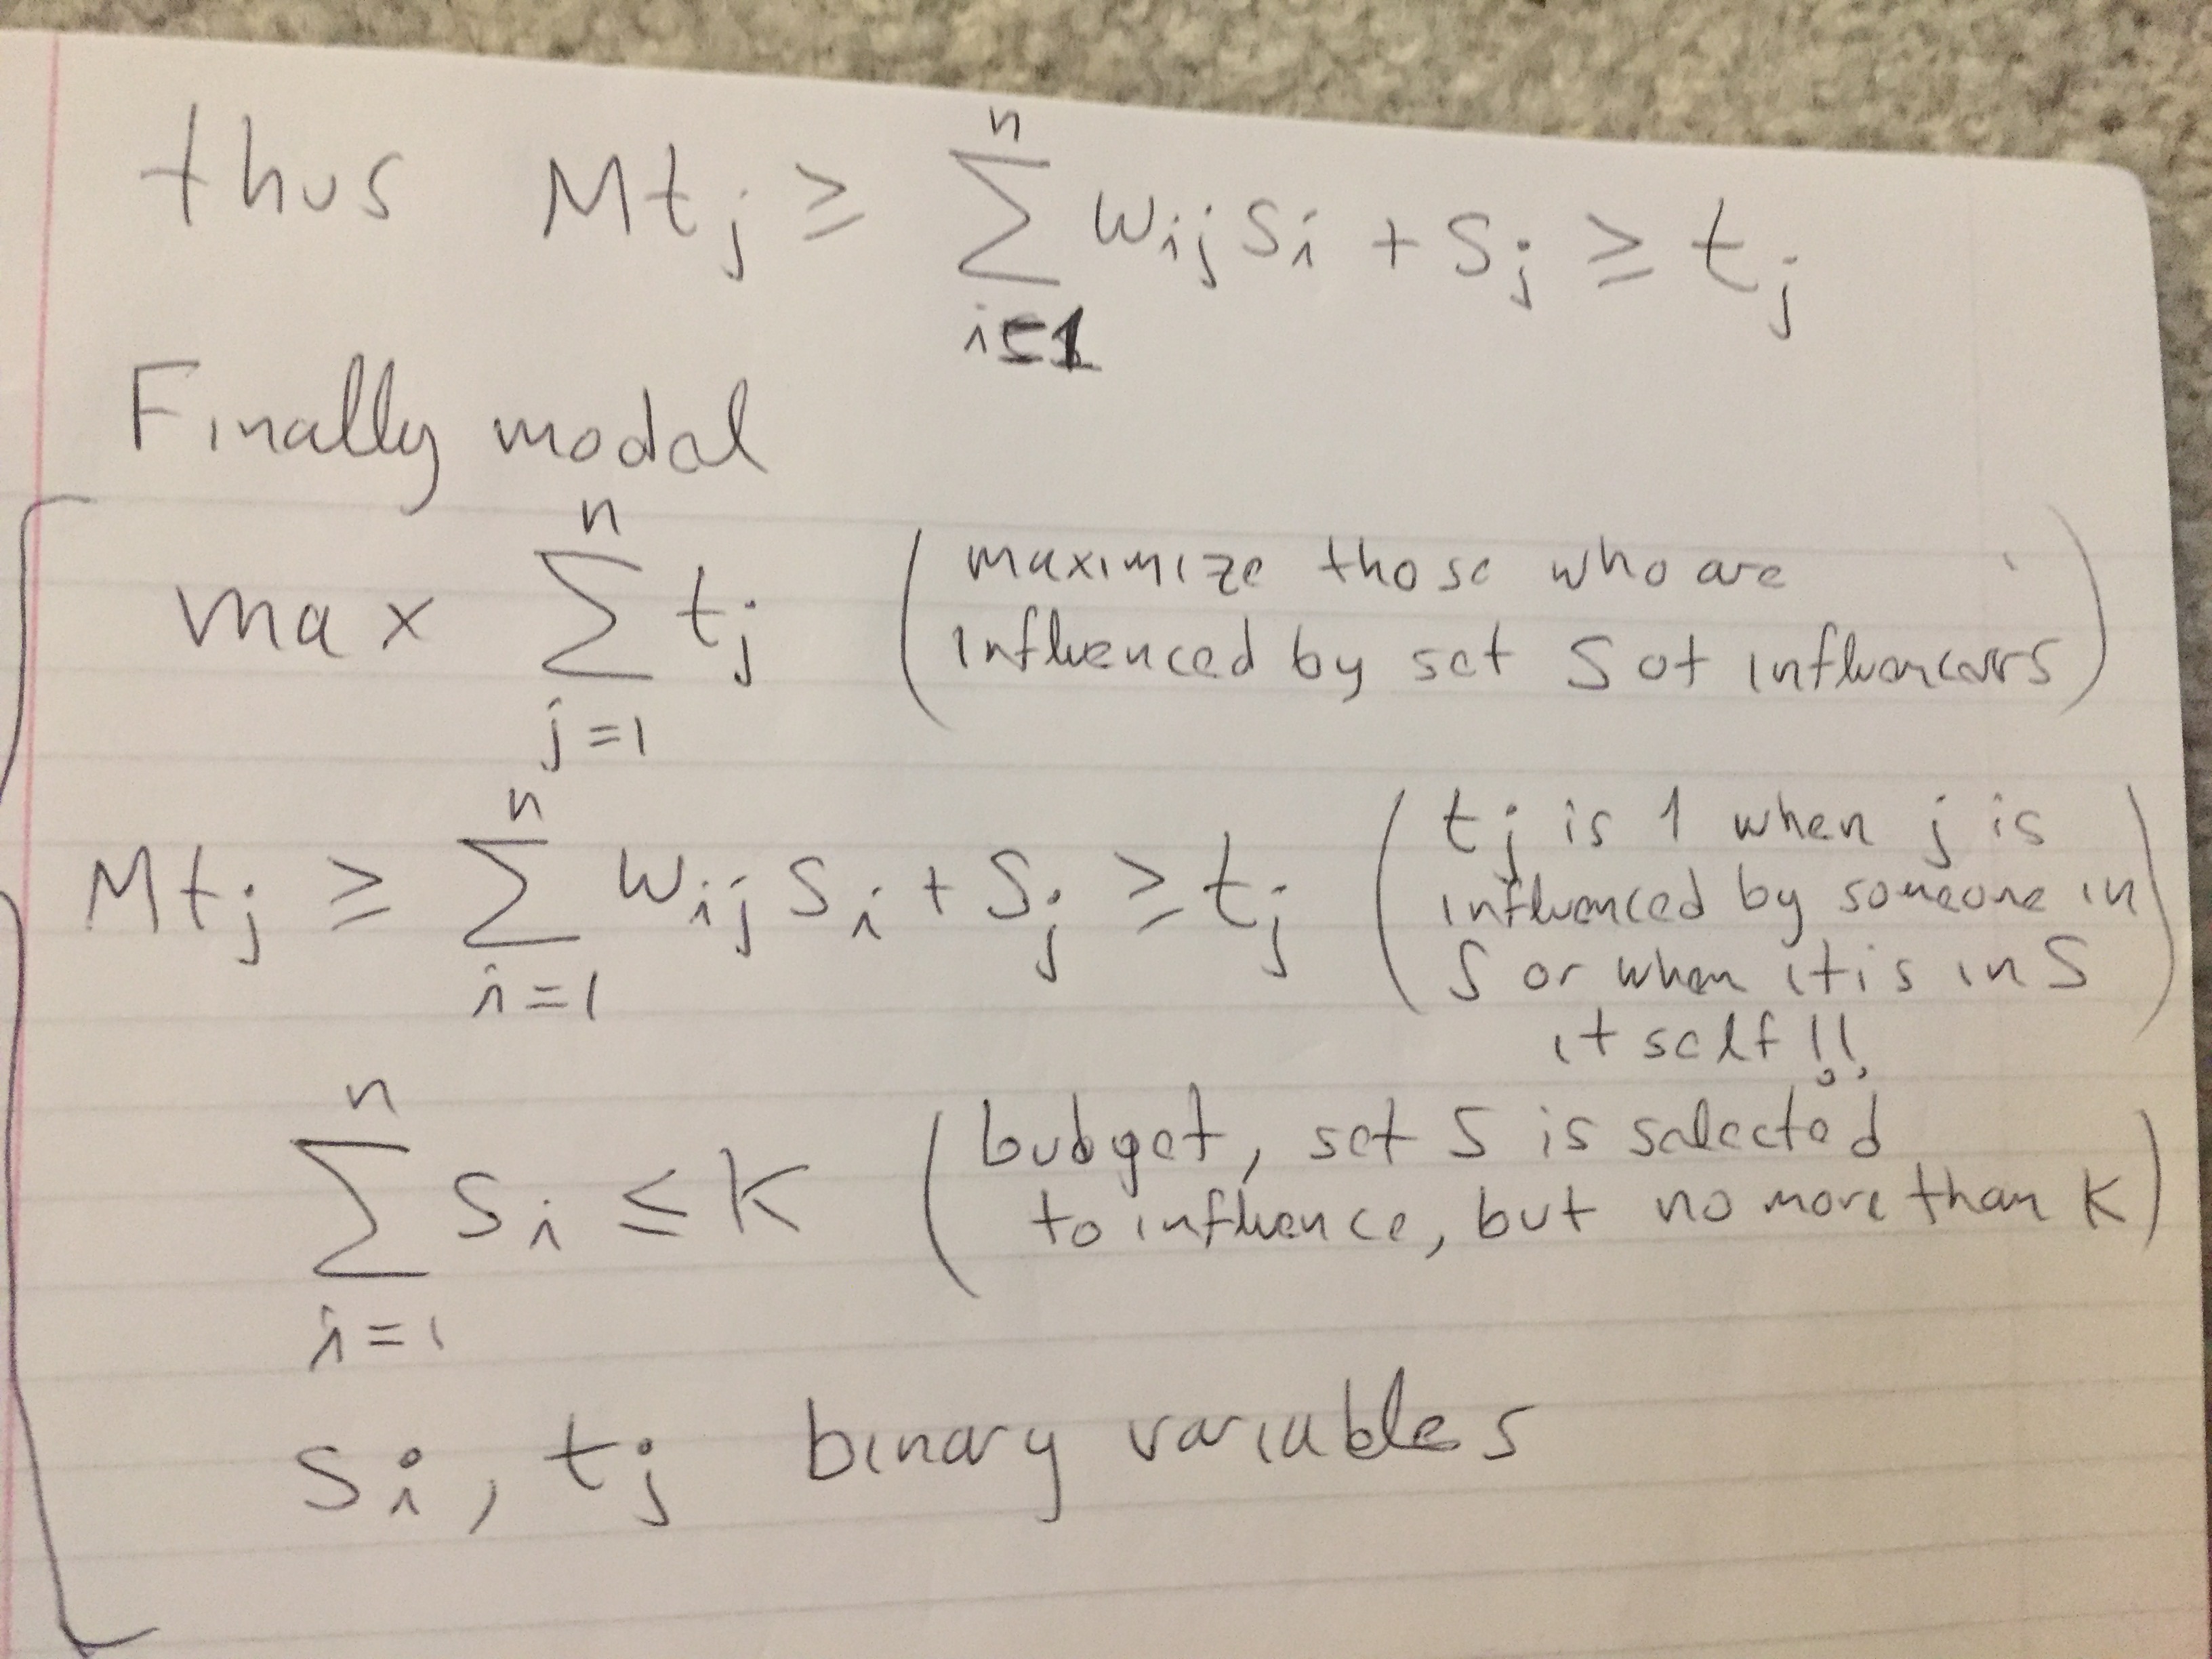 thus Mtj ≥ n∑i=1 wij si + sj ≥ tj
Finally modal
max n∑j=1 tj (maximize those who are
influenced by set S of influencers)
Mtj ≥ n∑i=1 wij si + sj ≥ tj (tj is 1 when j is
influenced by someone in
S or when it is in S)
itself!!
n∑i=1 si ≤ K (budget, set S is selected
to influence, but no more than K)
si, tj binary variables